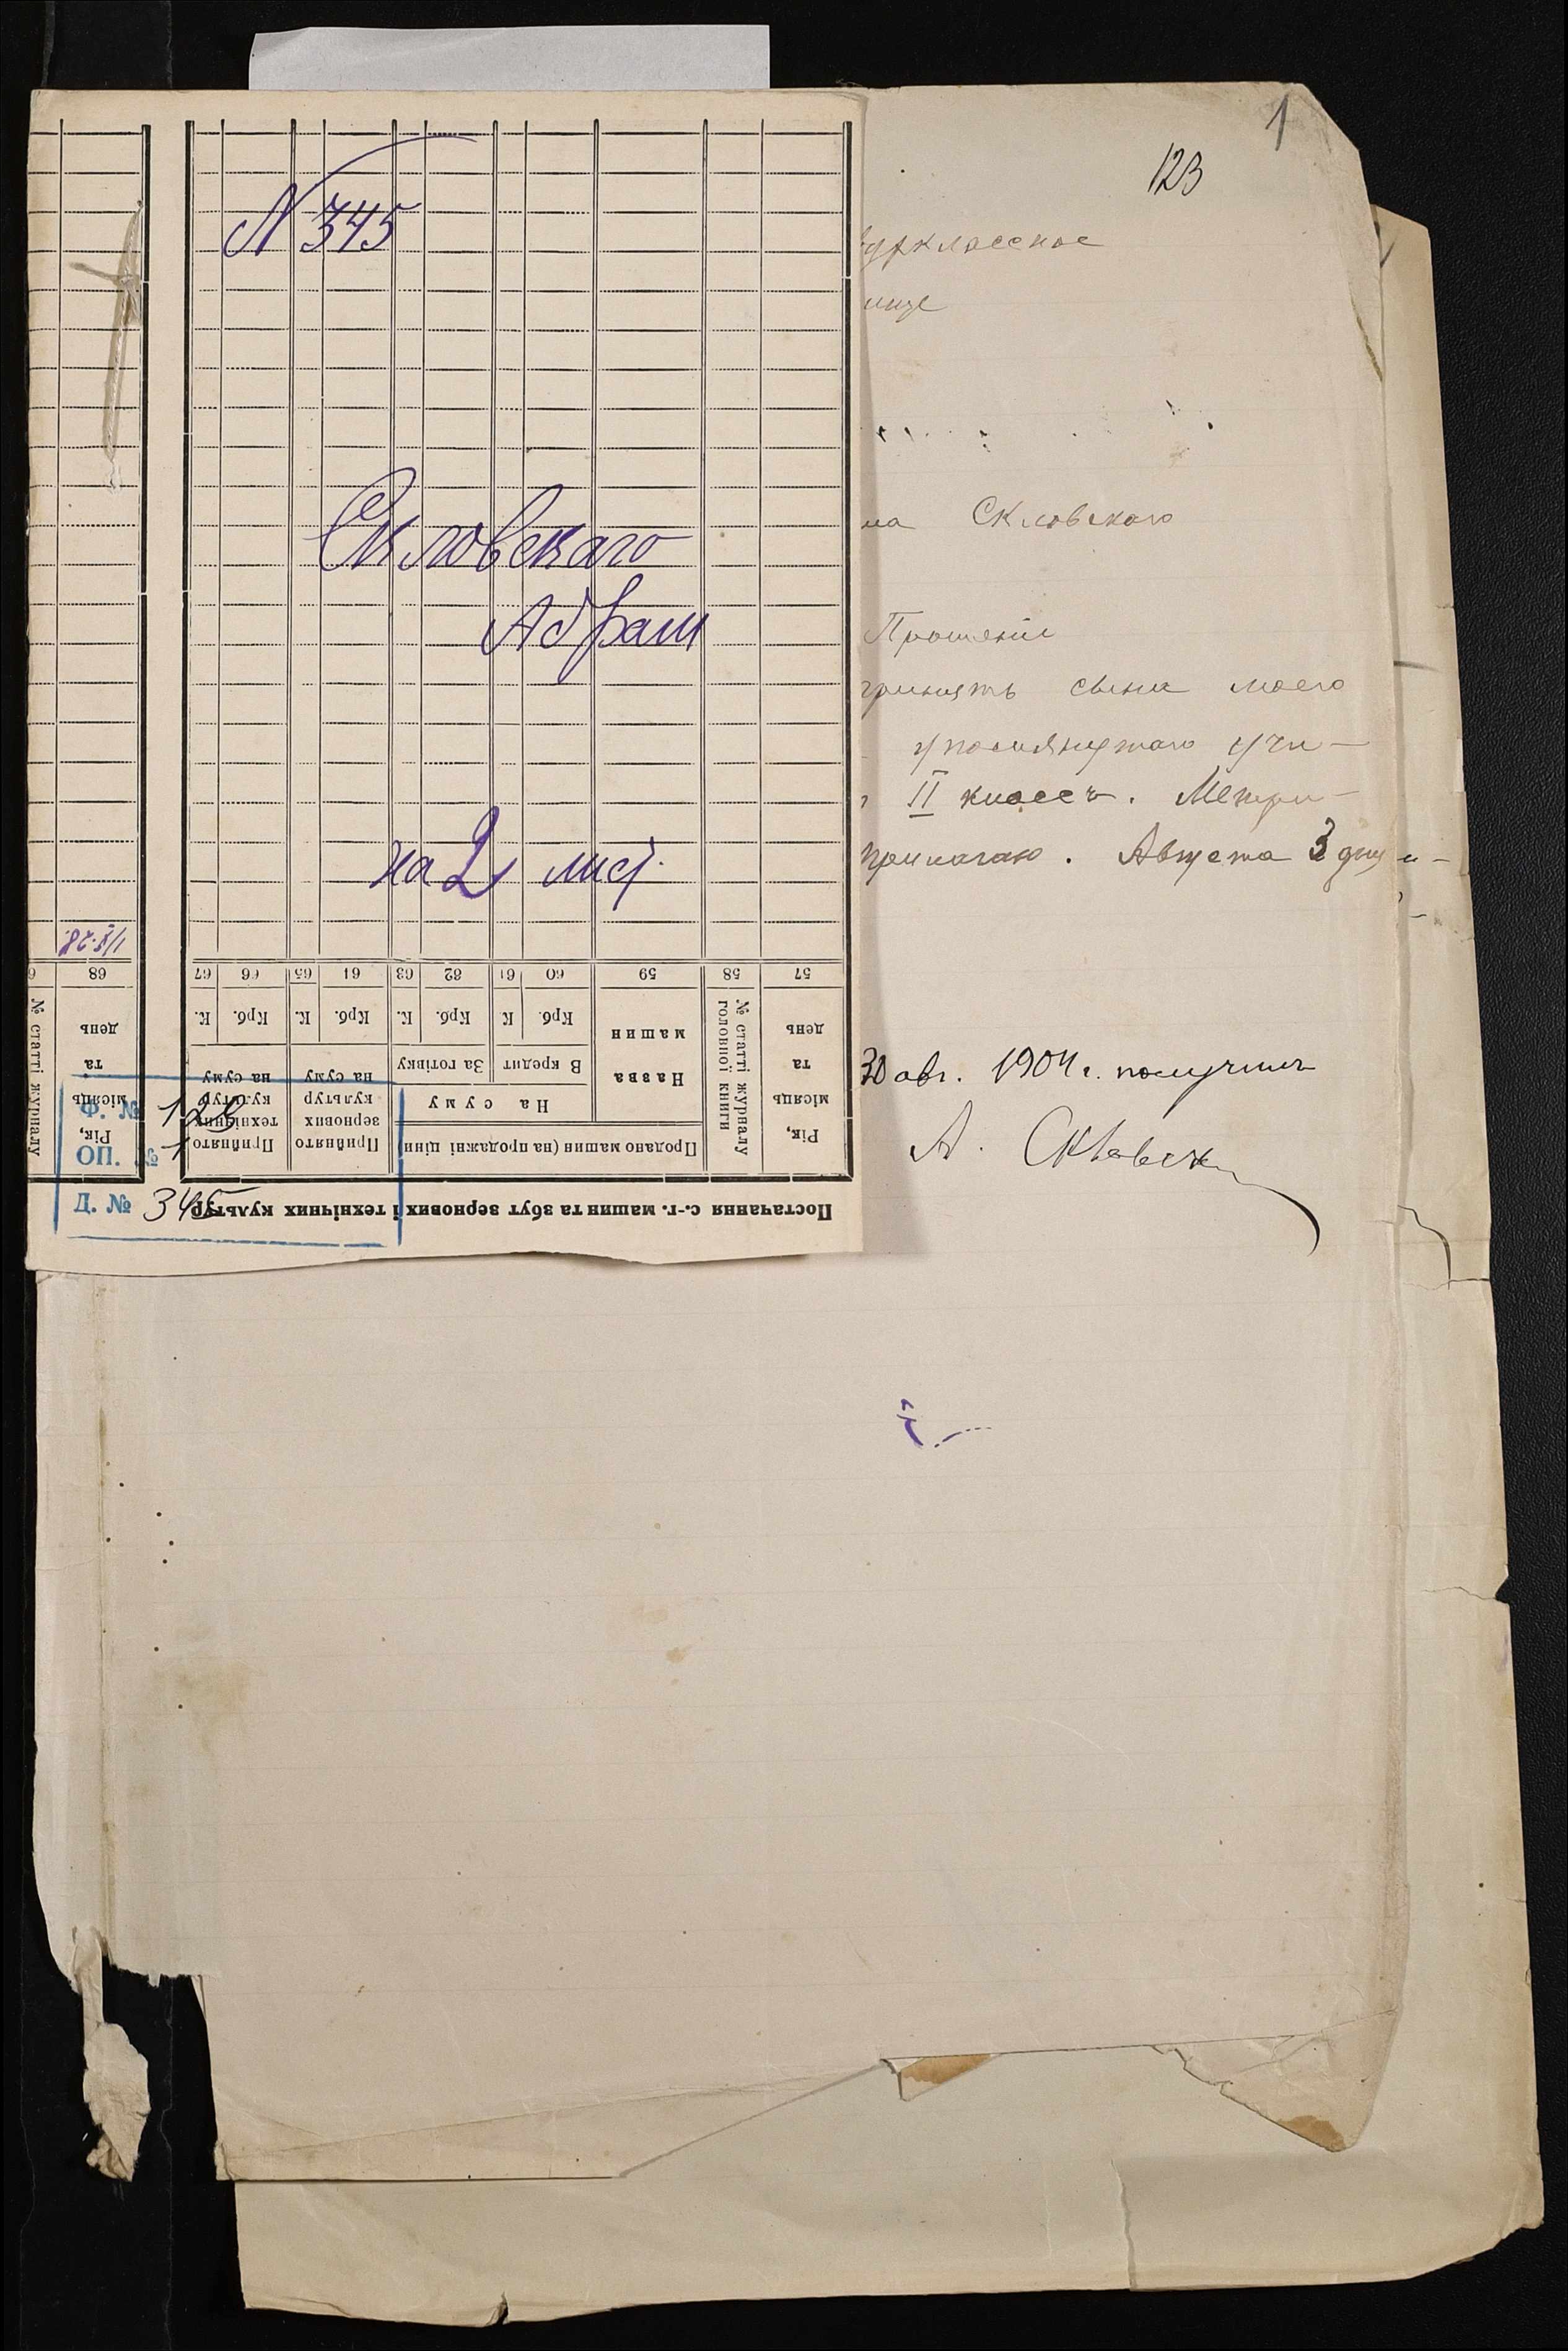 1
123
N 345
Скловскаго
Абрам
на 2 лист.
1/X-28
68 67 66 65 64 63 62 61 60 59 58 57
№ статті журналу
Рік, місяць та день
Прийнято технічних культур на суму
Крб. К.
Прийнято зернових культур на суму
Крб. К.
Продано машин (на продажні ціни)
На суму
За готівку
Крб. К.
В кредит
Крб. К
Назва машин
№ статті журналу головної книги
Рік, місяць та день
Постачання с.-г. машин та збут зернових і технічних культур
Ф. №
ОП. № 1
Д. № 345
классное
лище
на Скловскаго
Прошеніе
принять сына моего
упомянутаго учи-
II классъ. Метри-
прилагаю. Августа 3 дня
30 авг. 1904 г. получилъ
А. Скловск